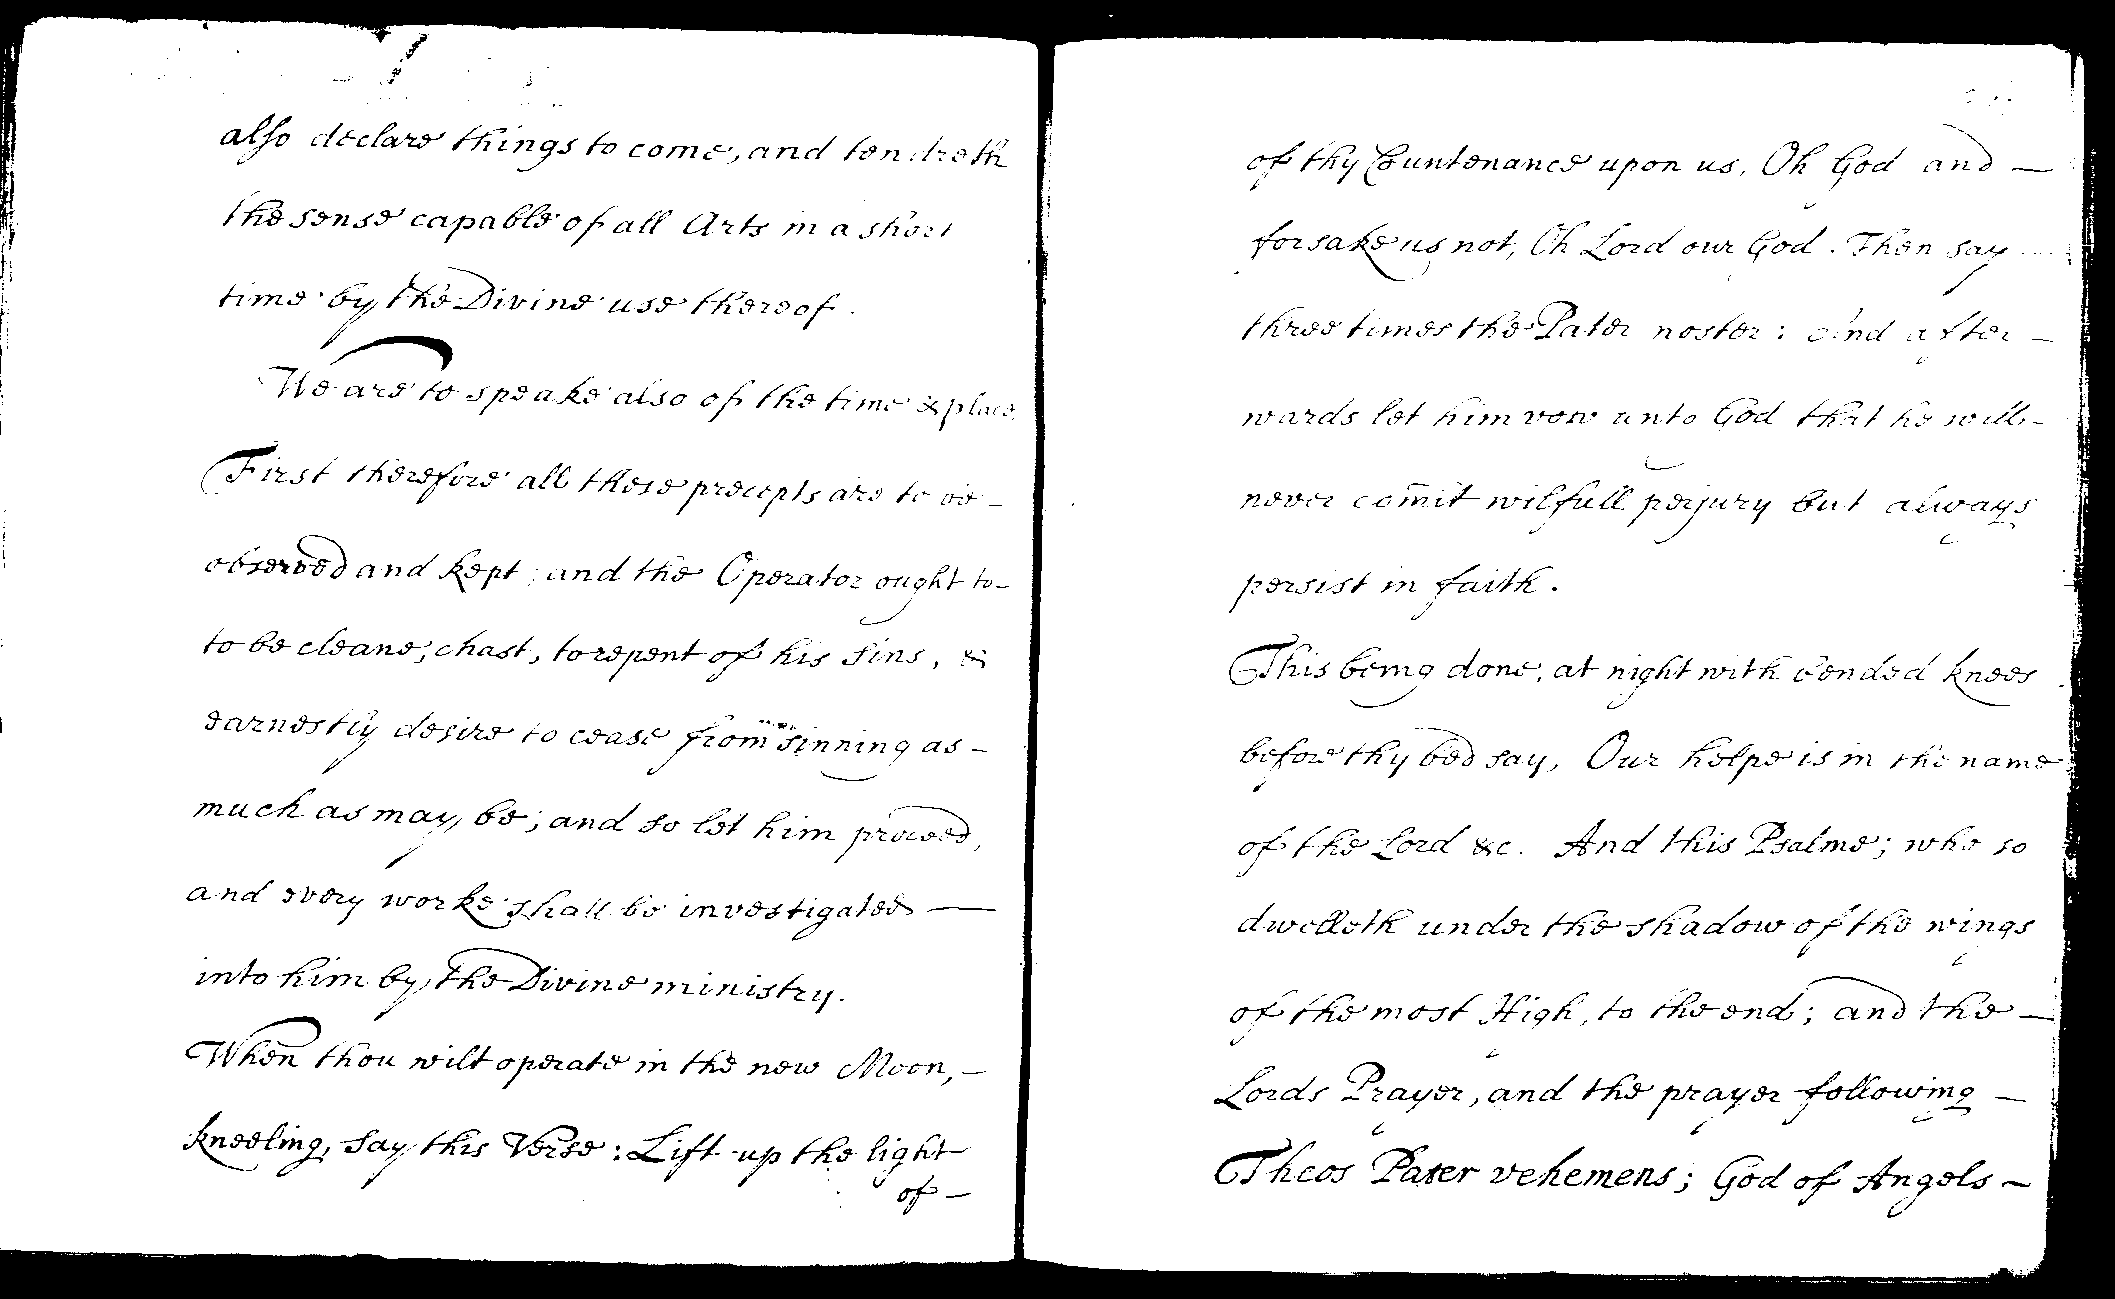 also declare things to come, and tendreth
the sense capable of all Arts in a short
time by the Divine use thereof.
We are to speake also of the time & place,
First therefore all these precepts are to be –
observed and kept; and the Operator ought to –
to be cleane, chast, to repent of his Sins, &
earnestly desire to cease from sinning as –
much as may be; and so let him proceed,
and every worke shall be investigated —
into him by the Divine ministry.
When thou wilt operate in the new Moon, –
kneeling, Say this Verse: Lift up the light
of –
of thy Countenance upon us, Oh God and –
forsake us not, Oh Lord our God. Then say –
three times the Pater noster: And after –
wards let him vow unto God that he will –
never com̄it wilfull perjury but always
persist in faith.
This being done, at night with bended knees
before thy bed say, Our helpe is in the name
of the Lord &c. And this Psalme; who so
dwelleth under the shadow of the wings
of the most High, to the end; and the –
Lords Prayer, and the prayer following –
Theos Pater vehemens; God of Angels –